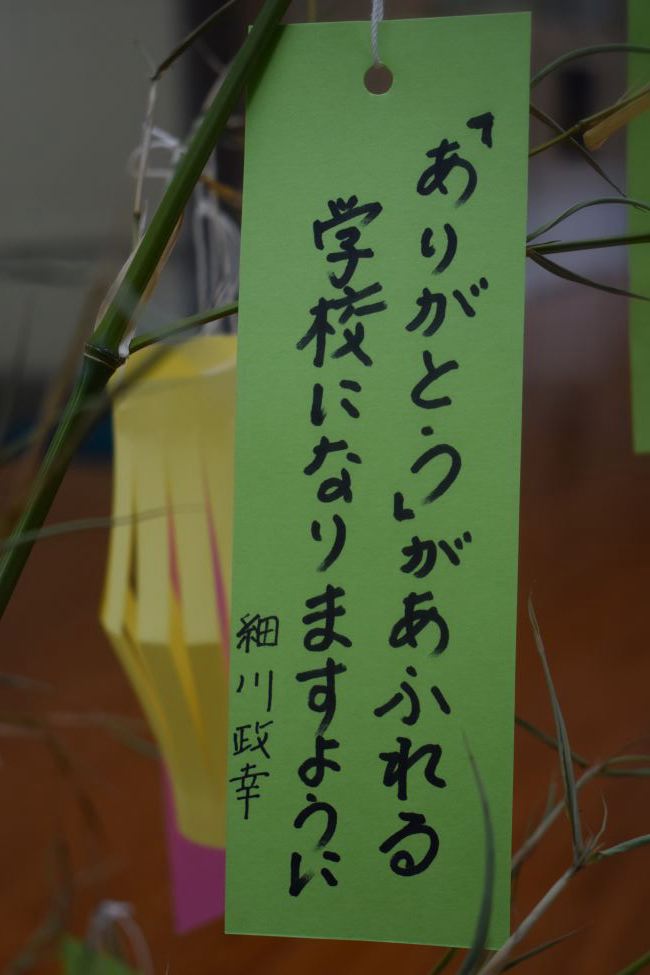 「ありがとう」があふれる
学校になりますように
細川政幸